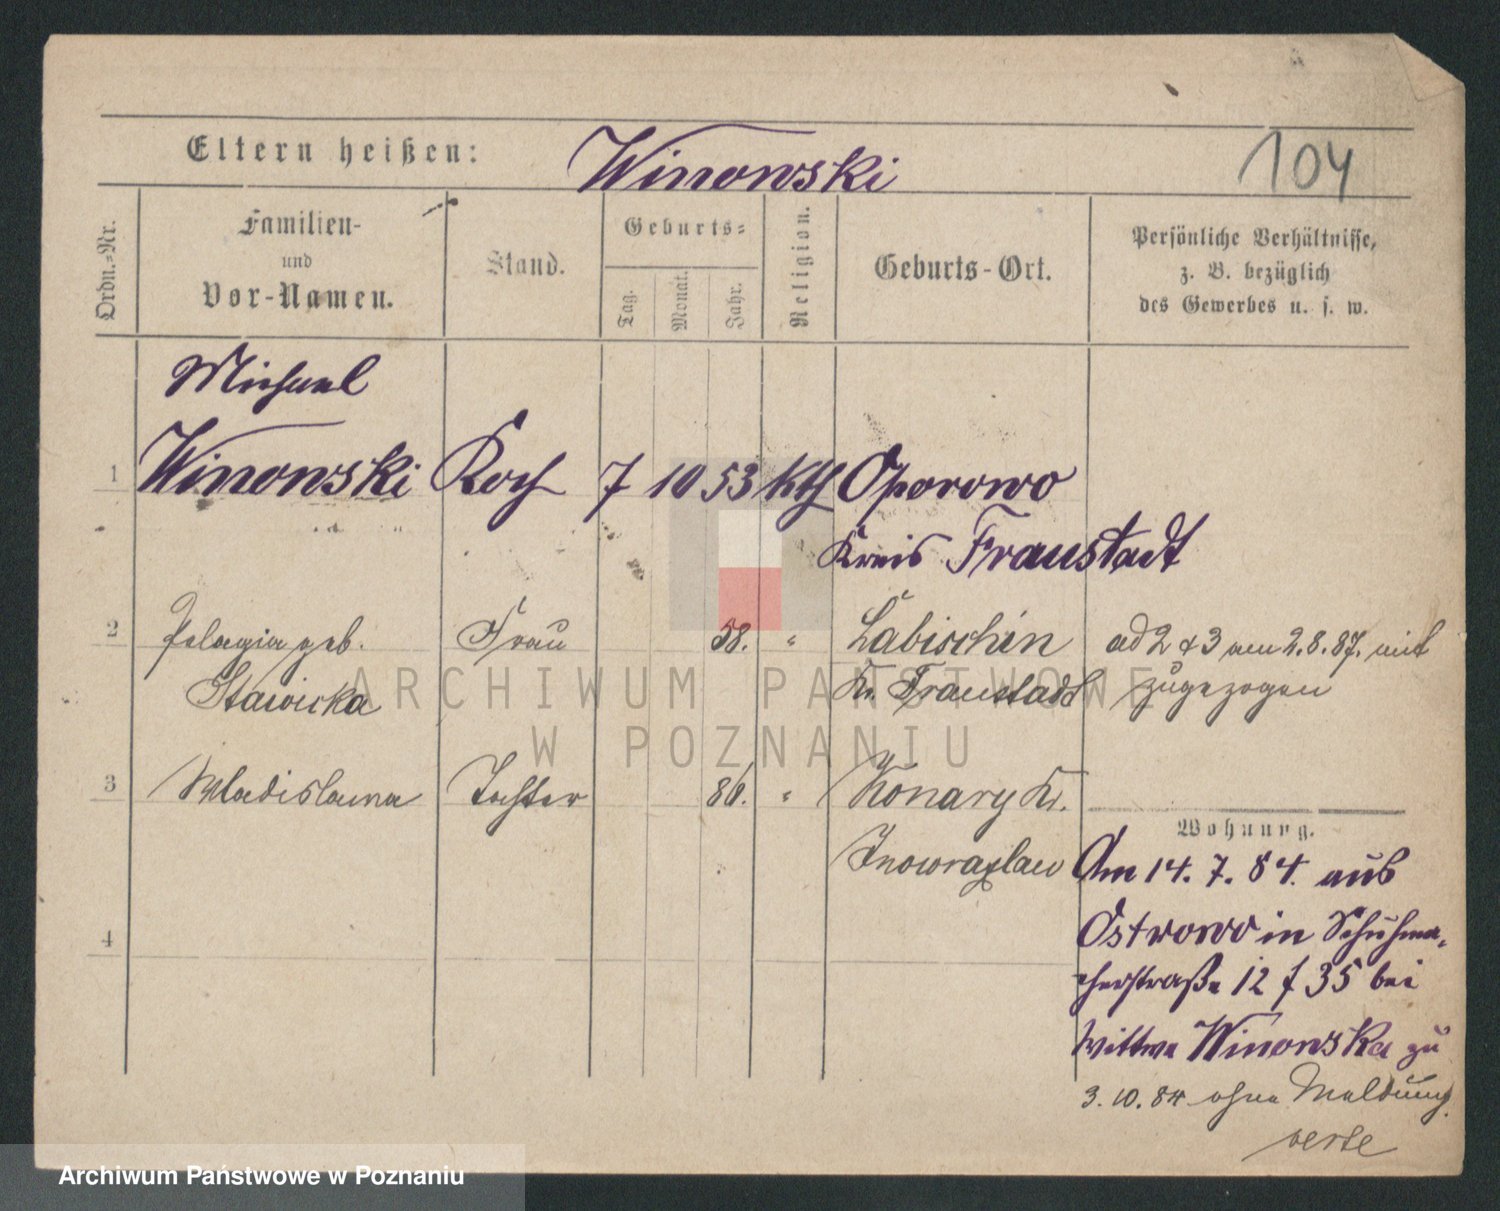 Eltern heißen: Winowski 104
Ordn.=Nr.
Familien-
und
Vor-Namen.
Stand.
Geburts=
Tag.
Monat.
Jahr.
Religion.
Geburts-Ort.
Persönliche Verhältnisse,
z. B. bezüglich
des Gewerbes u. s. w.
Michael
1 Winowski Koch 7 10 53 Kth Oporowo
Kreis Fraustadt
2 Pelagia geb. Frau 58. " Labischin ad 2 & 3 am 2.8.87. mit
Stawicka Kr. Fraustadt zugezogen
3 Wladislawa Tochter 86. " Konary Kr.
Inowrazlaw
Wohnung.
Am 14. 7. 84. aus
4 Ostrowo in Schuhma-
cherstraße 12 f 35 bei
Wittwe Winowska zu
3. 10. 84 ohne Meldung.
verte
ARCHIWUM PAŃSTWOWE
W POZNANIU
Archiwum Państwowe w Poznaniu